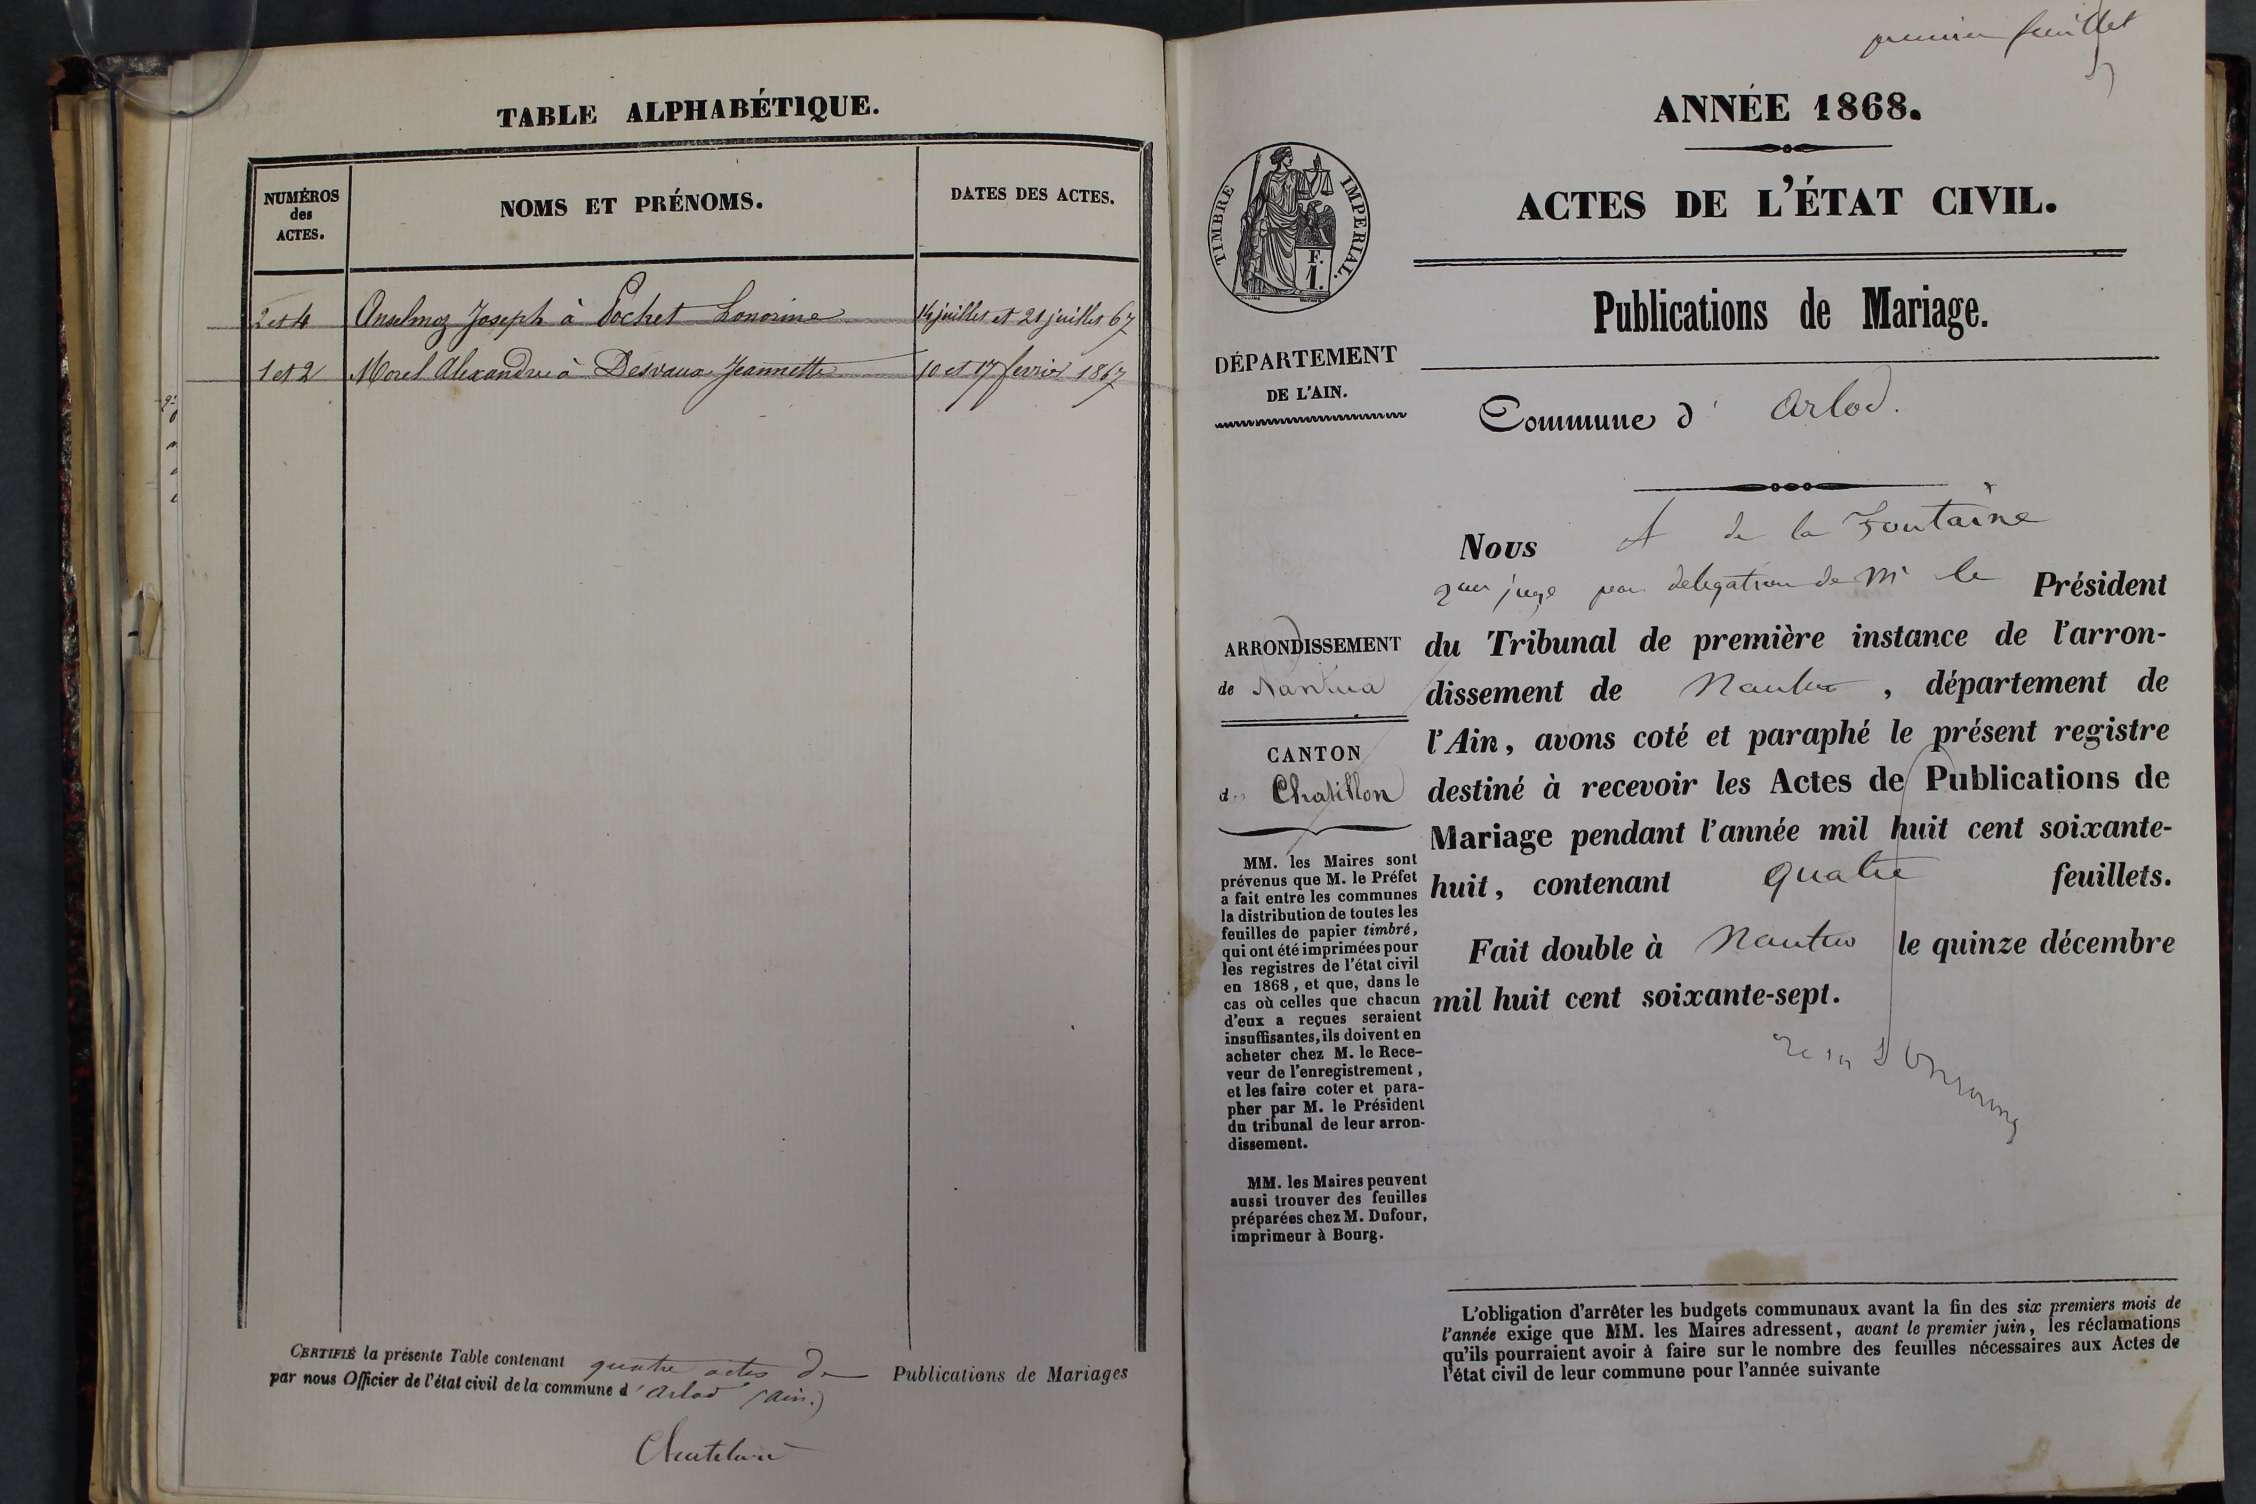 TABLE ALPHABÉTIQUE.
NUMÉROS
des
ACTES.
NOMS ET PRÉNOMS.
DATES DES ACTES.
2 et 4 Anselmoz Joseph à Pochet Honorine 14 juillet et 21 juillet 67
1 et 2 Morel Alexandre à Desvaux Jeannette 10 et 17 fevrier 1867
CERTIFIÉ la présente Table contenant quatre actes de Publications de Mariages
par nous Officier de l'état civil de la commune d'Arlod (Ain.)
Chatelain
premier feuillet
ANNÉE 1868.
ACTES DE L'ÉTAT CIVIL.
TIMBRE IMPERIAL.
F.
1.
Publications de Mariage.
DÉPARTEMENT
DE L'AIN.
Commune d' Arlod.
ARRONDISSEMENT
de Nantua
CANTON
de Chatillon
MM. les Maires sont
prévenus que M. le Préfet
a fait entre les communes
la distribution de toutes les
feuilles de papier timbré,
qui ont été imprimées pour
les registres de l'état civil
en 1868, et que, dans le
cas où celles que chacun
d'eux a reçues seraient
insuffisantes, ils doivent en
acheter chez M. le Rece-
veur de l'enregistrement,
et les faire coter et para-
pher par M. le Président
du tribunal de leur arron-
dissement.
MM. les Maires peuvent
aussi trouver des feuilles
préparées chez M. Dufour,
imprimeur à Bourg.
Nous A de la Fontaine
juge par delegation de Mr le Président
du Tribunal de première instance de l'arron-
dissement de Nantua, département de
l'Ain, avons coté et paraphé le présent registre
destiné à recevoir les Actes de Publications de
Mariage pendant l'année mil huit cent soixante-
huit, contenant quatre feuillets.
Fait double à Nantua le quinze décembre
mil huit cent soixante-sept.
L'obligation d'arrêter les budgets communaux avant la fin des six premiers mois de
l'année exige que MM. les Maires adressent, avant le premier juin, les réclamations
qu'ils pourraient avoir à faire sur le nombre des feuilles nécessaires aux Actes de
l'état civil de leur commune pour l'année suivante